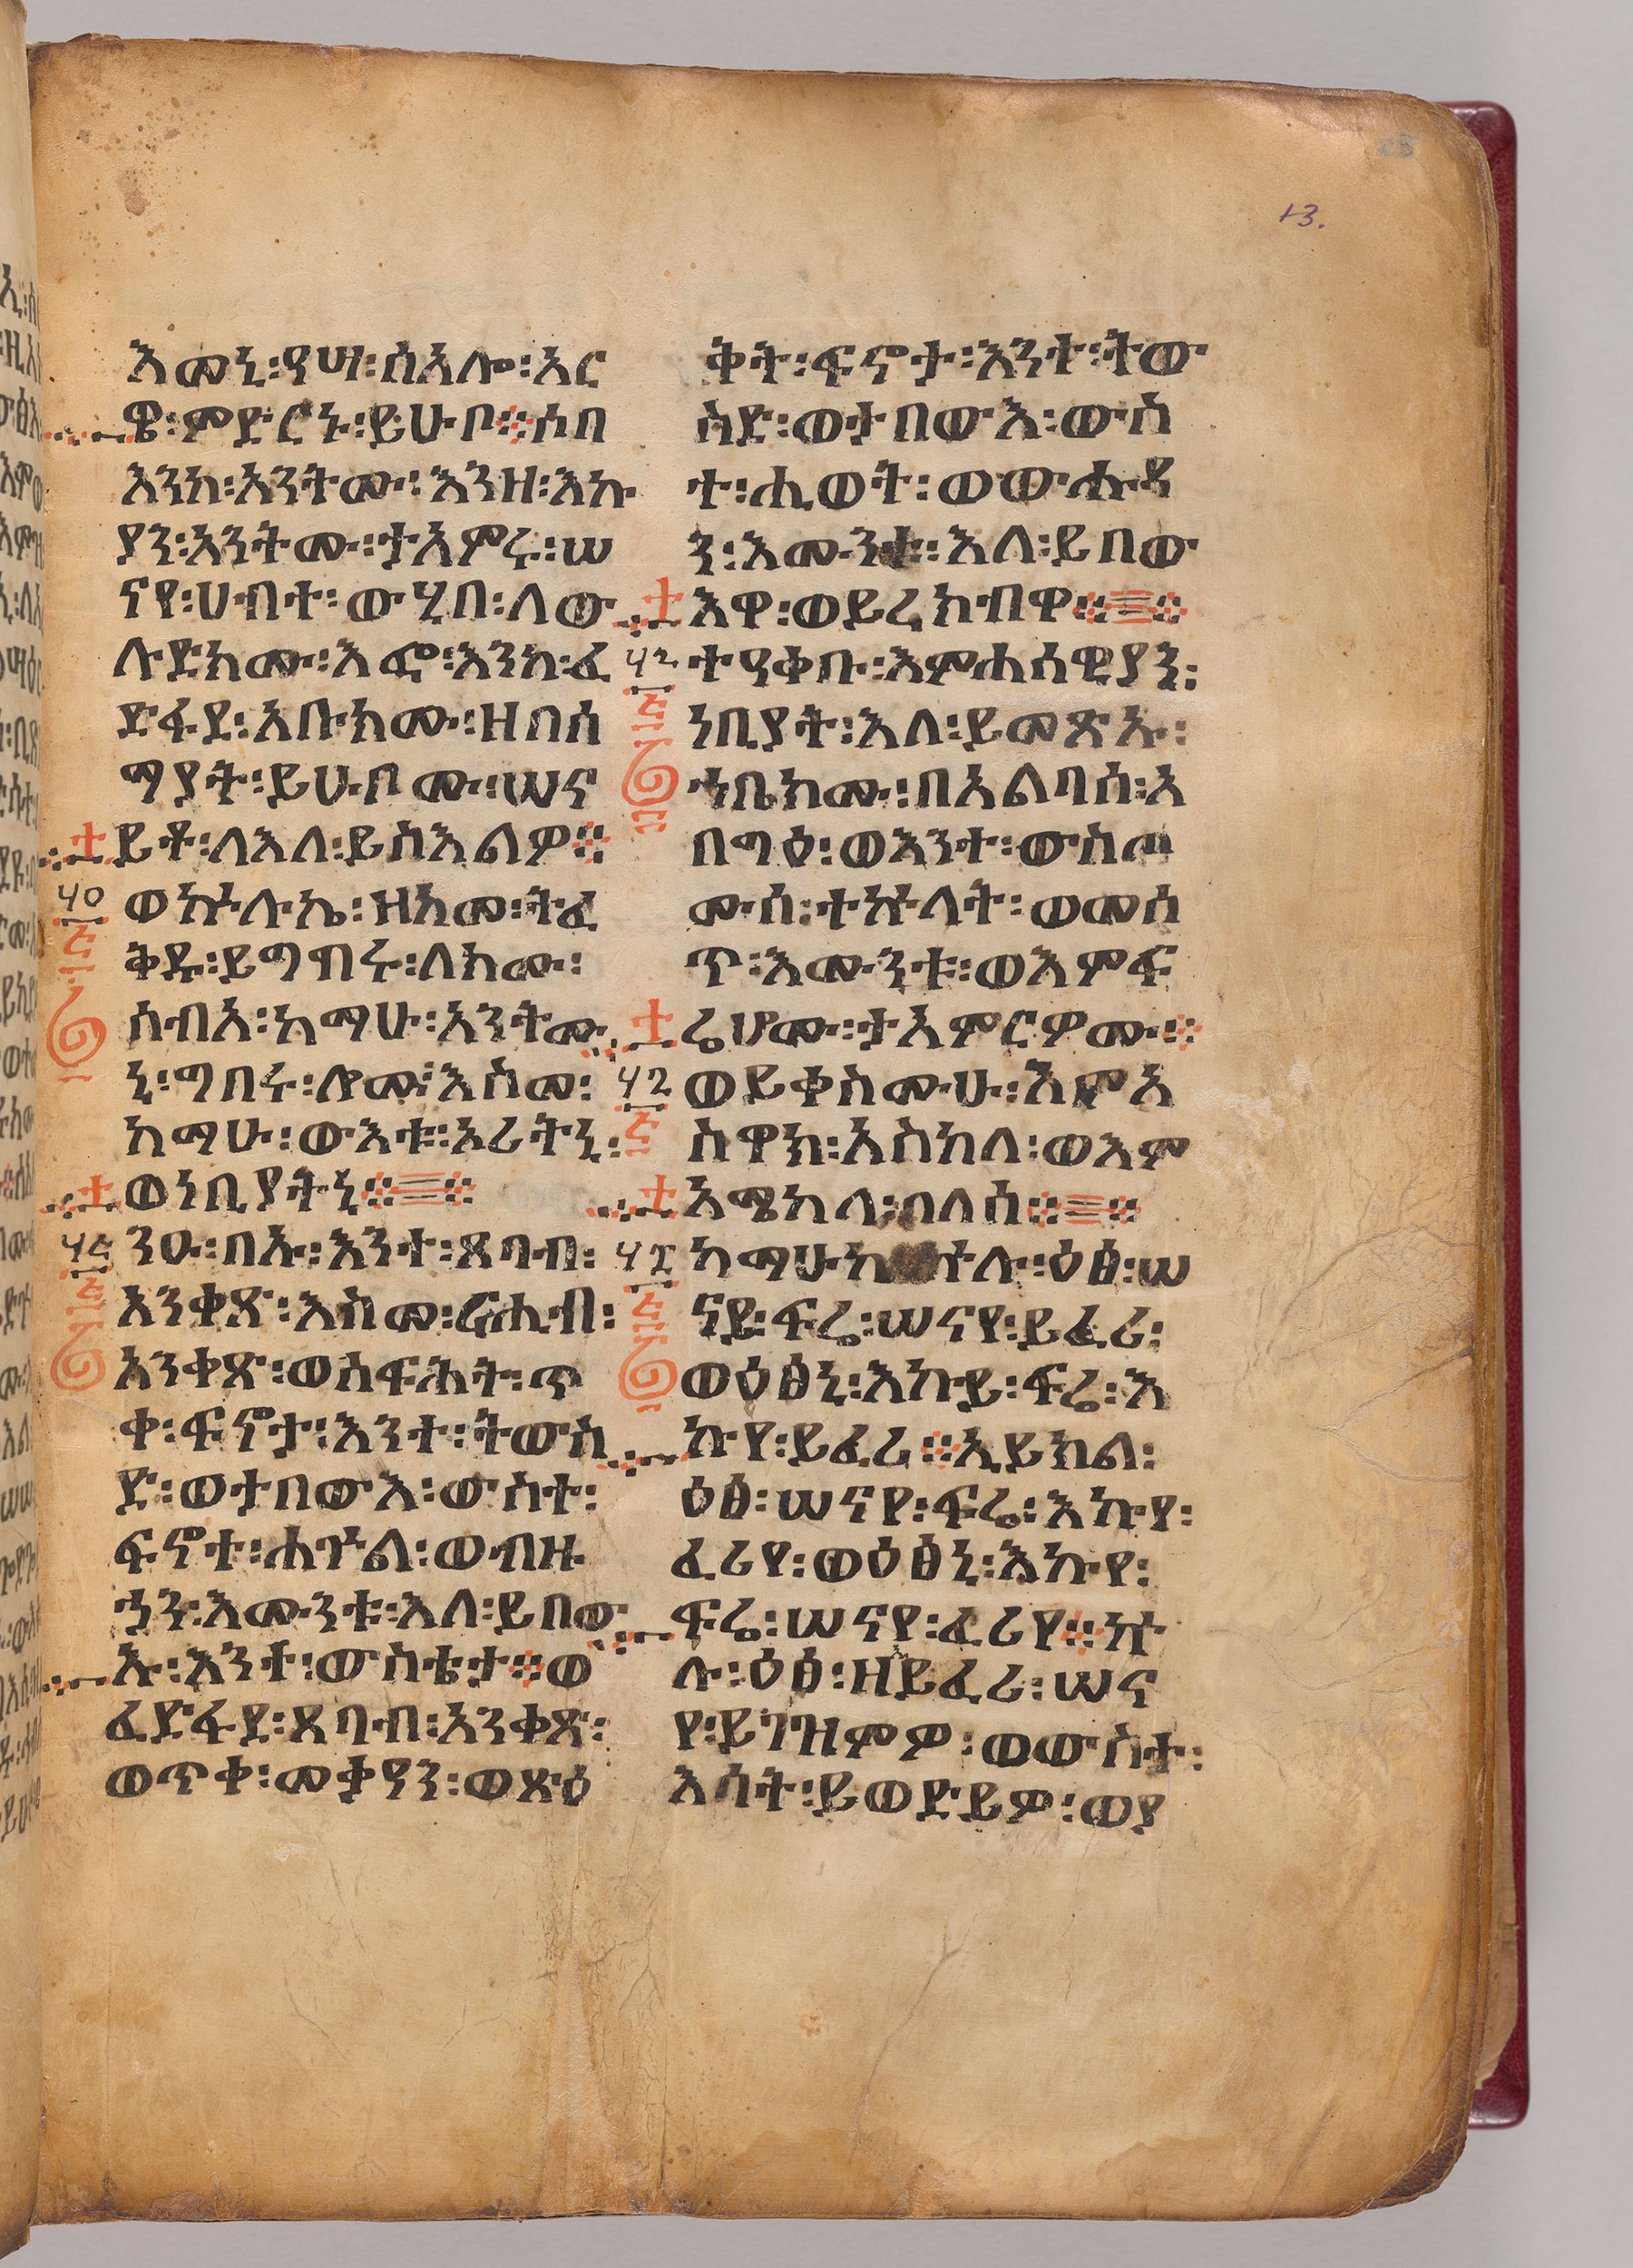 13.
እመኒ፡ዓሣ፡ሰአሎ፡አር
ዌ፡ምድርኑ፡ይሁቦ፨ሶበ
እንከ፡አንትሙ፡እንዘ፡እኩ
ያን፡አንትሙ፡ታአምሩ፡ሠ
ናየ፡ሀብተ፡ውሂበ፡ለው
ሉድክሙ፡እፎ፡እንከ፡ፈ
ድፋደ፡አቡክሙ፡ዘበሰ
ማያት፡ይሁቦሙ፡ሠና
ይቶ፡ለእለ፡ይስእልዎ፨
ወኵሉኬ፡ዘከመ፡ትፈ
ቅዱ፡ይግበሩ፡ለክሙ፡
ሰብእ፡ከማሁ፡አንትሙ
ኒ፡ግበሩ፡ሎሙ፡እስመ፡
ከማሁ፡ውእቱ፡አሪትኒ፡
ወነቢያትኒ፨
ንዑ፡በኡ፡እንተ፡ጸባብ፡
አንቀጽ፡እስመ፡ርሒብ፡
አንቀጽ፡ወሰፋሕት፡ጥ
ቀ፡ፍኖታ፡እንተ፡ትወስ
ድ፡ወታበውእ፡ውስተ፡
ፍኖተ፡ሐጕል፡ወብዙ
ኃን፡እሙንቱ፡እለ፡ይበው
ኡ፡እንተ፡ውስቴታ፨ወ
ፈድፋደ፡ጸባብ፡አንቀጽ፡
ወጥቀ፡መቃን፡ወጽዕ
ቅት፡ፍኖታ፡እንተ፡ትወ
ስድ፡ወታበውእ፡ውስ
ተ፡ሒወት፡ወውሑዳ
ን፡እሙንቱ፡እለ፡ይበው
እዋ፡ወይረክብዋ፨
ተዓቀቡ፡እምሐሰዊያን፡
ነቢያት፡እለ፡ይመጽኡ፡
ኀቤክሙ፡በአልባሰ፡አ
በግዕ፡ወእንተ፡ውስጦ
ሙሰ፡ተኵላት፡ወመሰ
ጥ፡እሙንቱ፡ወእምፍ
ሬሆሙ፡ታአምርዎሙ፨
ወይቀስሙሁ፡እምአ
ስዋክ፡አስከለ፡ወእም
አሜከላ፡በለሰ፨
ከማሁኬ ኵሉ፡ዕፅ፡ሠ
ናይ፡ፍሬ፡ሠናየ፡ይፈሪ፡
ወዕፅኒ፡እኩይ፡ፍሬ፡እ
ኩየ፡ይፈሪ፨ኢይክል፡
ዕፅ፡ሠናየ፡ፍሬ፡እኩየ፡
ፈሪየ፡ወዕፅኒ፡እኩየ፡
ፍሬ፡ሠናየ፡ፈሪየ፨ኵ
ሉ፡ዕፅ፡ዘኢይፈሪ፡ሠና
የ፡ይገዝምዎ፡ወውስተ፡
እሳት፡ይወድይዎ፡ወያ